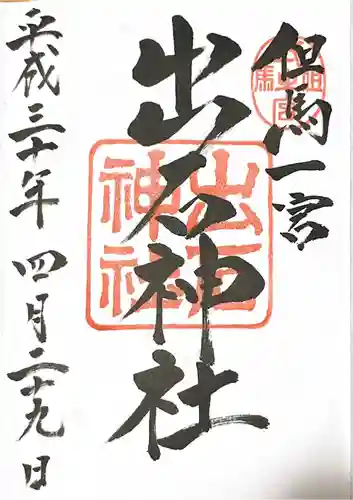 但馬一宮
出石神社
平成三十年 四月二十九日
出石神社